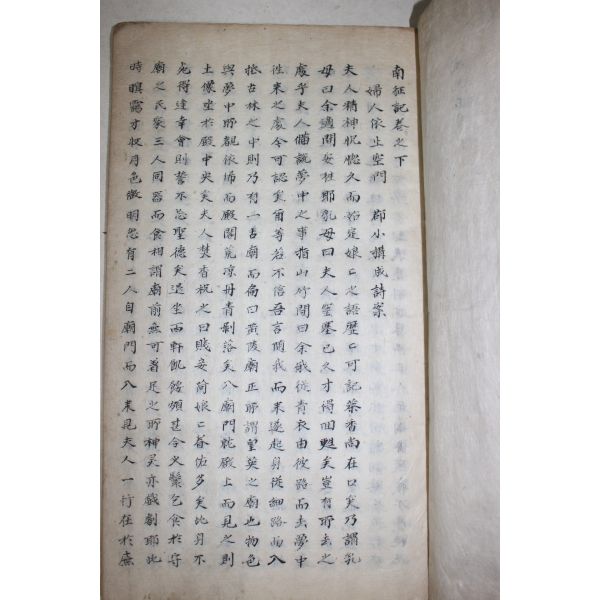 南征記卷之下
婦人依止空門 郡小搆成詩案
夫人精神恍惚久而始定娘々之語歷々可記茶香尚在口矣乃謂乳
母曰余適間安往耶乳母曰夫人窒塞已久才得回甦矣豈有所去之
處乎夫人備說夢中之事指山竹間曰余俄從靑衣由彼路而去夢中
往來之處今可認矣爾等若不信吾言隨我而來遂起身從細路而入
抵古林之中則乃有一古廟而扁曰黃陵廟正所謂皇英之廟也物色
與夢中所覩依俙而殿閣荒凉丹靑剝落矣入廟門就殿上而見之則
土像坐於殿中央矣夫人焚香祝之曰賤妾荷娘々眷佑多矣此身不
死得逢幸會則誓不忘聖德矣退坐西軒飢餒頗甚令叉鬟乞食於守
廟之民家三人同器而食相謂廟前無可着足之所神灵亦戲劇耶此
時暝靄才收月色微明忽有二人自廟門而入來見夫人一行在於